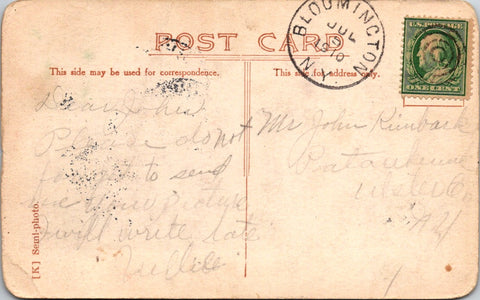 POST CARD
This side may be used for correspondence.
This side for address only.
BLOOMINGTON
JUL
1910
N.Y.
U.S. POSTAGE
ONE CENT
Dear John
Please do not
forget to send
me your picture
I will write late
Mr John Rimbach
Ulster Co.
N.Y.
[K] Semi-photo.